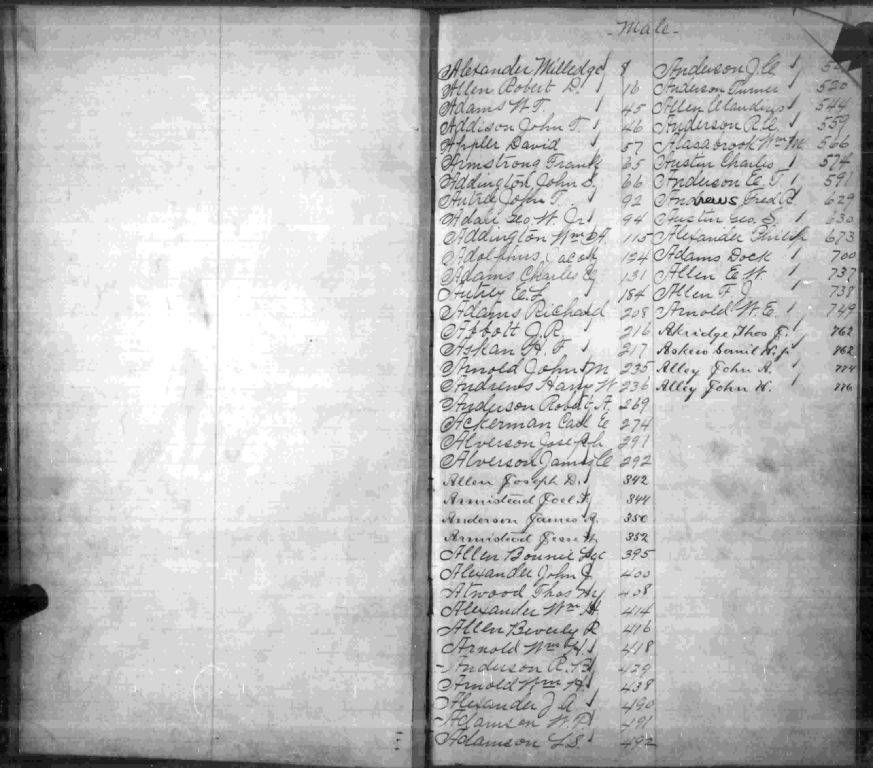 - Male -
Alexander Milledge 8
Allen Robert D. 16
Adams W. T. 45
Addison John T. 46
Appler David 57
Armstrong Frank 65
Addington John S. 66
Autrey John T. 92
Adair Geo W. Jr 94
Addington Wm A. 115
Adolphus Jacob 124
Adams Charles C 131
Autrey E. L. 184
Adams Richard 208
Abbott J. R. 216
Askan H. F. 217
Arnold John M 235
Andrews Harry W 236
Anderson Robt A. 269
Ackerman Carl E 274
Alverson Joseph 291
Alverson James C 292
Allen Joseph D. 342
Armistead Joel 344
Anderson James A. 350
Armistead 352
Allen Bonnie 395
Alexander John J. 400
Atwood Thos Hy 408
Alexander Wm H. 414
Allen Beverly R 416
Arnold Wm H. 418
Anderson R. 429
Arnold Wm H. 438
Alexander J. A. 490
Adamson W. P. 491
Adamson L. S. 492
Anderson J. C.
Anderson Turner 520
Allen 544
Anderson R. C. 559
Alasabrook Wm M 566
Austin Charles 574
Anderson E. T. 591
Andrews Fred R. 629
Austin Geo. S. 630
Alexander Philip 673
Adams Dock 700
Allen E. W. 737
Allen F. J. 738
Arnold W. E. 749
Akridge Thos F. 762
Askew W. Jr. 762
Alley John A. 774
Alley John W. 776